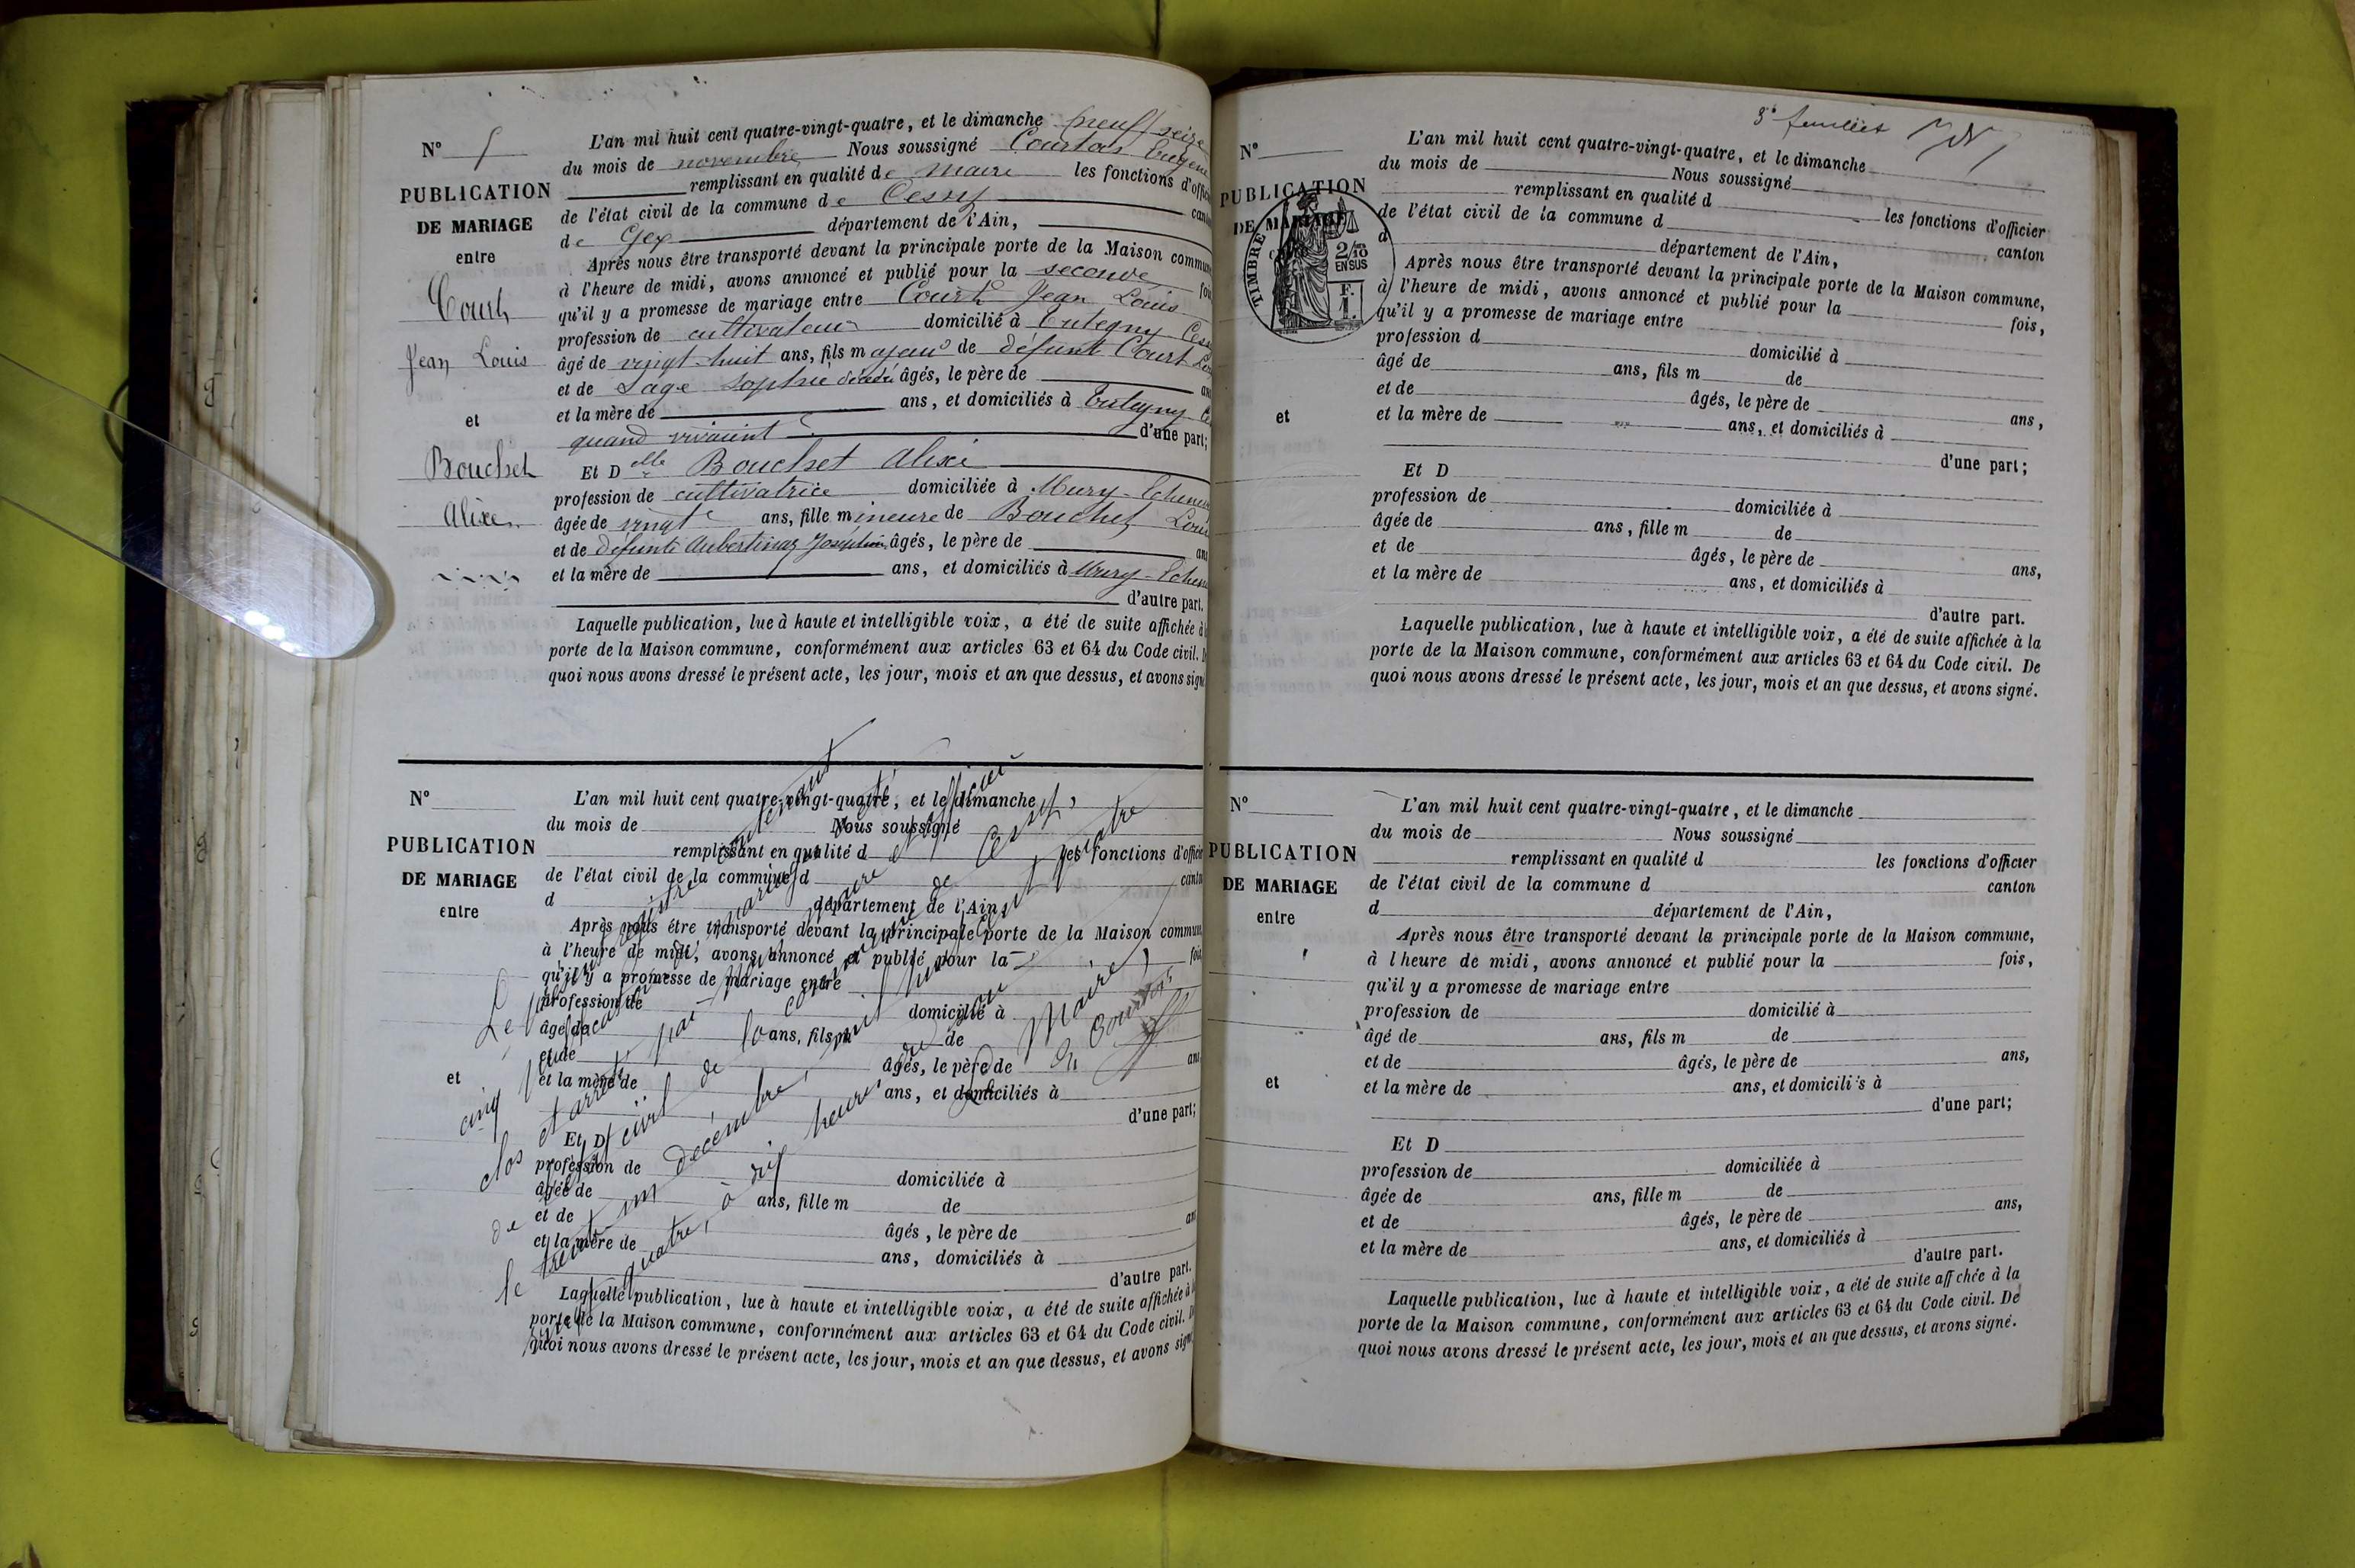 N° 5
PUBLICATION
DE MARIAGE
entre
Court
Jean Louis
et
Bouchet
Alixe
L'an mil huit cent quatre-vingt-quatre, et le dimanche seize
du mois de novembre Nous soussigné Courtois Eugène
remplissant en qualité de Maire les fonctions d'offic
de l'état civil de la commune de Cessy canto
de Gex département de l'Ain,
Après nous être transporté devant la principale porte de la Maison commun
à l'heure de midi, avons annoncé et publié pour la seconde foi
qu'il y a promesse de mariage entre Court Jean Louis
profession de cultivateur domicilié à Tutegny Cess
âgé de vingt-huit ans, fils majeur de défunt Court Lou
et de Sage Sophie décédé âgés, le père de ans
et la mère de ans, et domiciliés à Tutegny Ce
quand vivaient d'une part;
Et Delle Bouchet Alixe
profession de cultivatrice domiciliée à Mury-Echene
âgée de vingt ans, fille mineure de Bouchet Loui
et de défunte Aubertinaz Joséphine âgés, le père de ans
et la mère de ans, et domiciliés à Mury-Echen
d'autre part.
Laquelle publication, lue à haute et intelligible voix, a été de suite affichée à
porte de la Maison commune, conformément aux articles 63 et 64 du Code civil. D
quoi nous avons dressé le présent acte, les jour, mois et an que dessus, et avons sign
N°
PUBLICATION
DE MARIAGE
entre
et
L'an mil huit cent quatre-vingt-quatre, et le dimanche
du mois de Nous soussigné
remplissant en qualité d les fonctions d'offici
de l'état civil de la commune d canto
d département de l'Ain,
Après nous être transporté devant la principale porte de la Maison commun
à l'heure de midi, avons annoncé et publié pour la fois
qu'il y a promesse de mariage entre
profession de domicilié à
âgé de ans, fils m de
et de âgés, le père de ans
et la mère de ans, et domiciliés à
d'une part;
Et D
profession de domiciliée à
âgée de ans, fille m de
et de âgés, le père de an
et la mère de ans, domiciliés à
d'autre part.
Laquelle publication, lue à haute et intelligible voix, a été de suite affichée à
porte de la Maison commune, conformément aux articles 63 et 64 du Code civil. D
quoi nous avons dressé le présent acte, les jour, mois et an que dessus, et avons sign
Le présent registre contenant
cinq publications de mariages a été
clos et arrêté par nous maire et officier
de l'état civil de la commune de Cessy,
le trente-un décembre mil huit cent quatre
vingt quatre, à dix heures du soir
Le Maire,
E. Courtois
3e feuillet
N°
PUBLICATION
DE MARIAGE
TIMBRE
2/10
EN SUS
F.
1.
et
L'an mil huit cent quatre-vingt-quatre, et le dimanche
du mois de Nous soussigné
remplissant en qualité d les fonctions d'officier
de l'état civil de la commune d canton
d département de l'Ain,
Après nous être transporté devant la principale porte de la Maison commune,
à l'heure de midi, avons annoncé et publié pour la fois,
qu'il y a promesse de mariage entre
profession d domicilié à
âgé de ans, fils m de
et de âgés, le père de ans,
et la mère de ans, et domiciliés à
d'une part;
Et D
profession de domiciliée à
âgée de ans, fille m de
et de âgés, le père de ans,
et la mère de ans, et domiciliés à
d'autre part.
Laquelle publication, lue à haute et intelligible voix, a été de suite affichée à la
porte de la Maison commune, conformément aux articles 63 et 64 du Code civil. De
quoi nous avons dressé le présent acte, les jour, mois et an que dessus, et avons signé.
N°
PUBLICATION
DE MARIAGE
entre
et
L'an mil huit cent quatre-vingt-quatre, et le dimanche
du mois de Nous soussigné
remplissant en qualité d les fonctions d'officier
de l'état civil de la commune d canton
d département de l'Ain,
Après nous être transporté devant la principale porte de la Maison commune,
à l heure de midi, avons annoncé et publié pour la fois,
qu'il y a promesse de mariage entre
profession de domicilié à
âgé de ans, fils m de
et de âgés, le père de ans,
et la mère de ans, et domiciliés à
d'une part;
Et D
profession de domiciliée à
âgée de ans, fille m de
et de âgés, le père de ans,
et la mère de ans, et domiciliés à
d'autre part.
Laquelle publication, lue à haute et intelligible voix, a été de suite aff chée à la
porte de la Maison commune, conformément aux articles 63 et 64 du Code civil. De
quoi nous avons dressé le présent acte, les jour, mois et an que dessus, et avons signé.